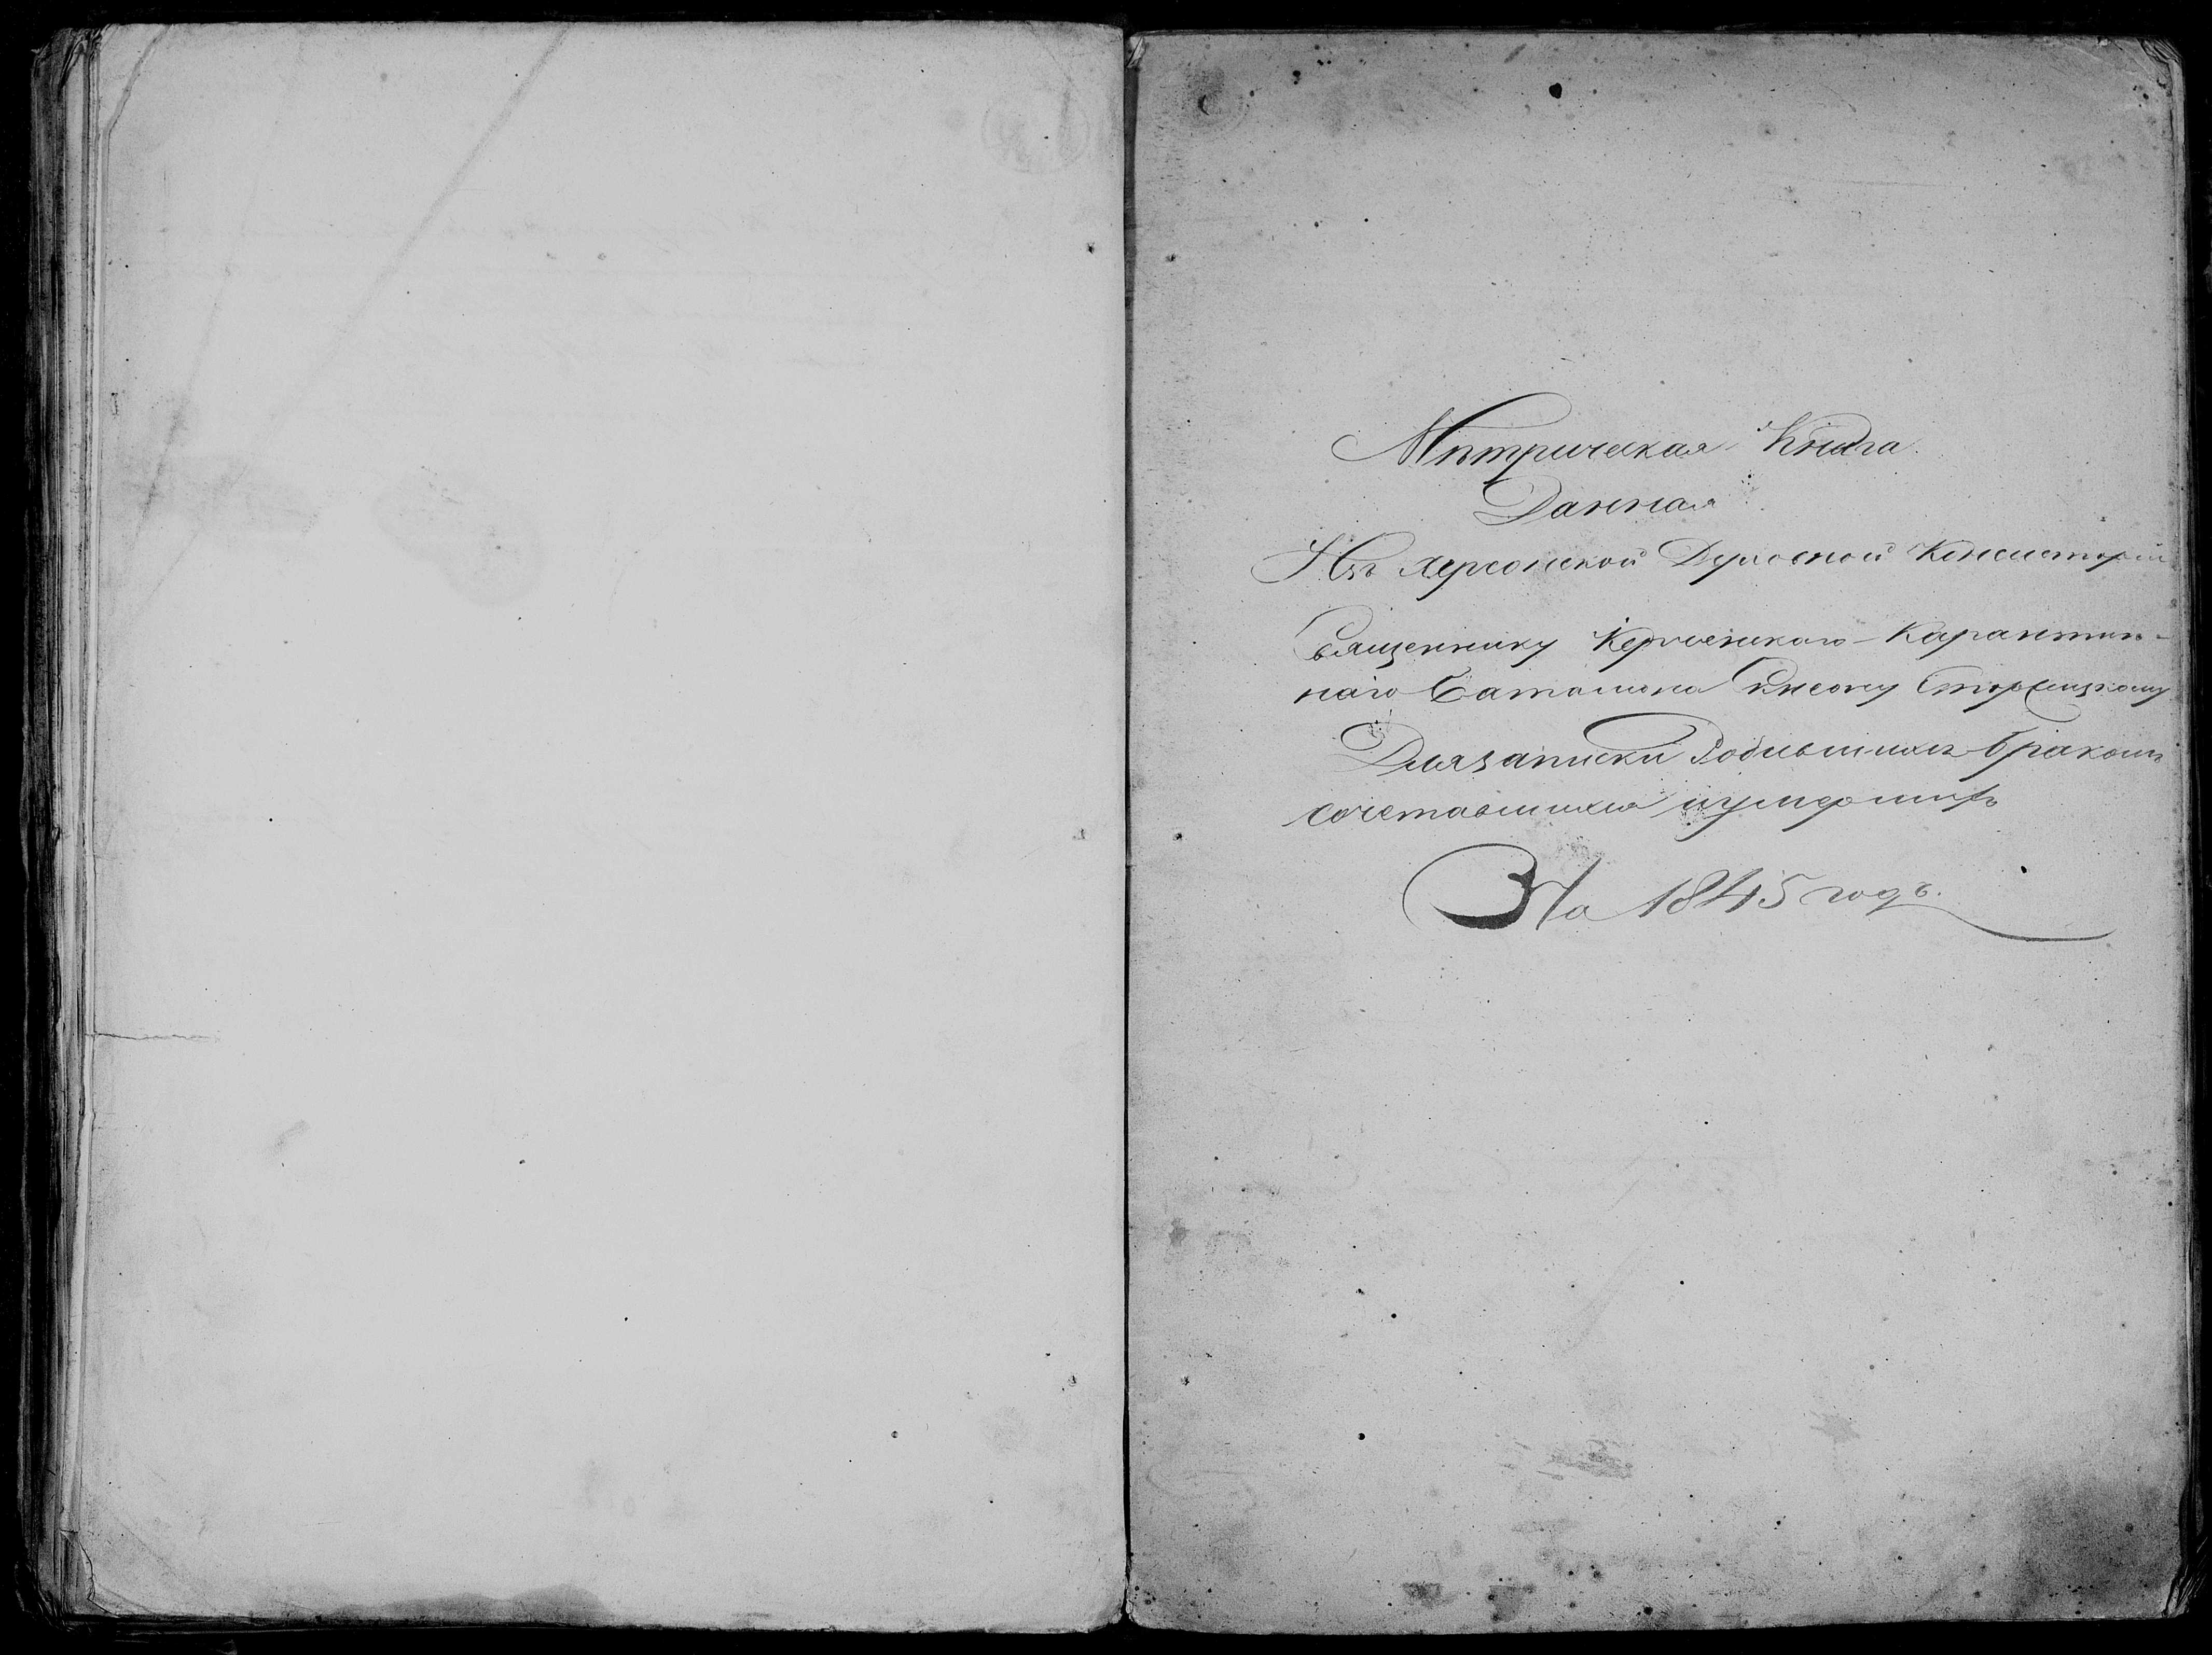 Мѣтрическая Книга
Данная
Изъ Херсонской Духовной Консисторіи
Священнику Керченскаго Карантин-
наго Баталіона
Для записки Родившихъ бракомъ
сочетавшихся иумершихъ
На 1845 годъ.